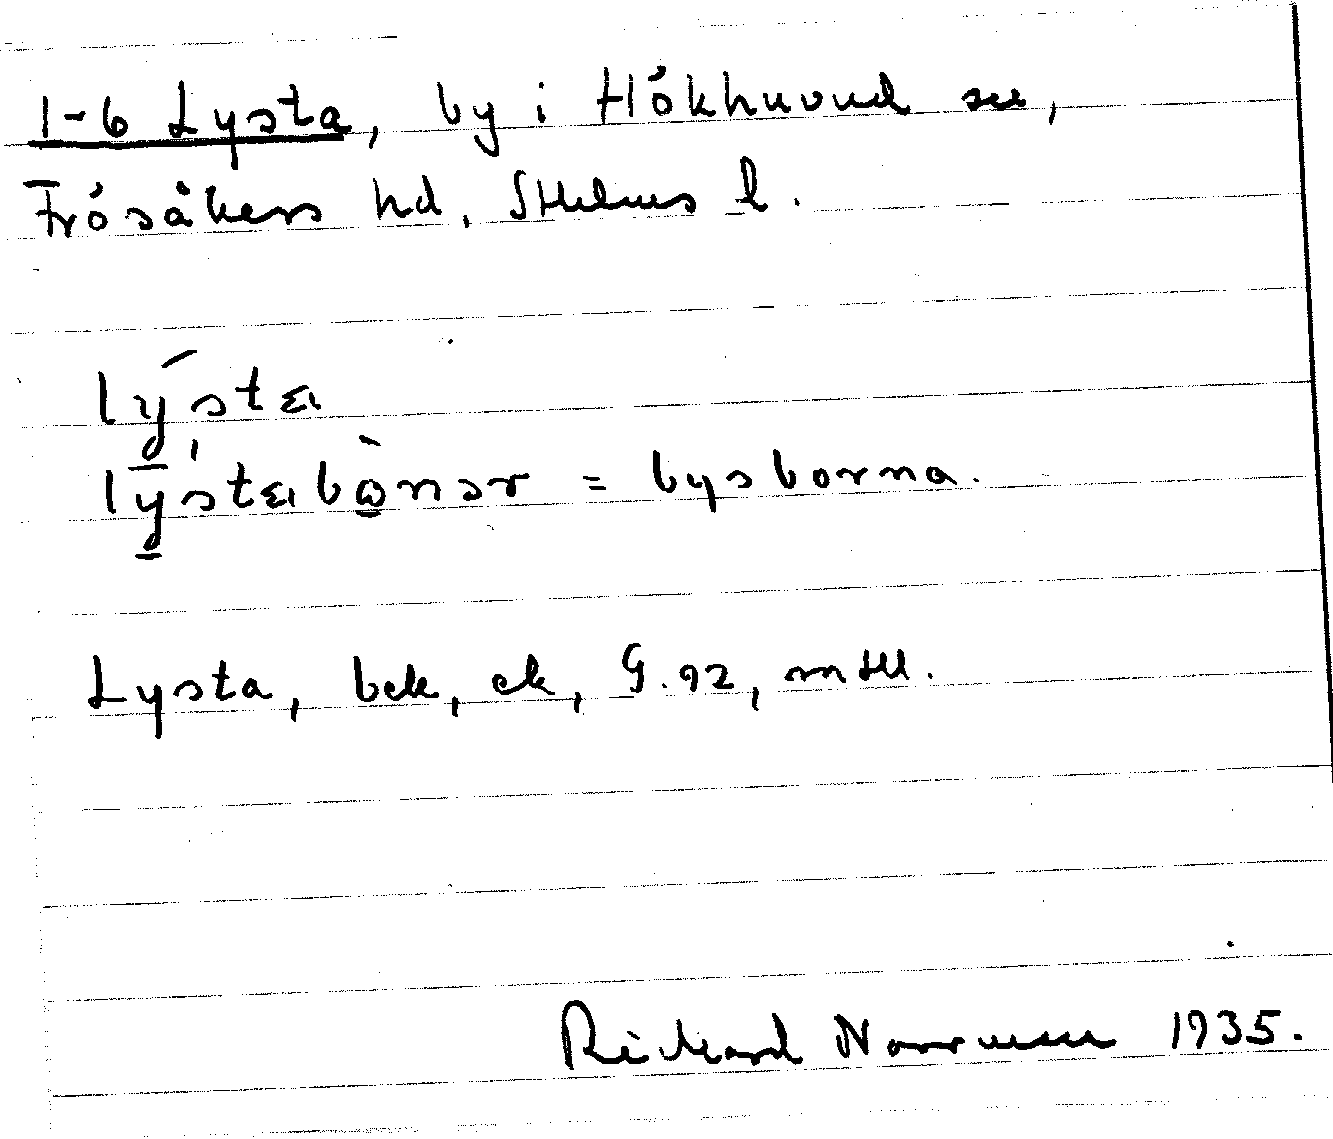 1-6 Lysta, by i Hökhuvud sn,
Frösåkers hd, Sthlms l.
lýsta
lýstabònər = bysborna.
Lysta, bek, ek, G. 92, mtll.
Rickard Norrman 1935.